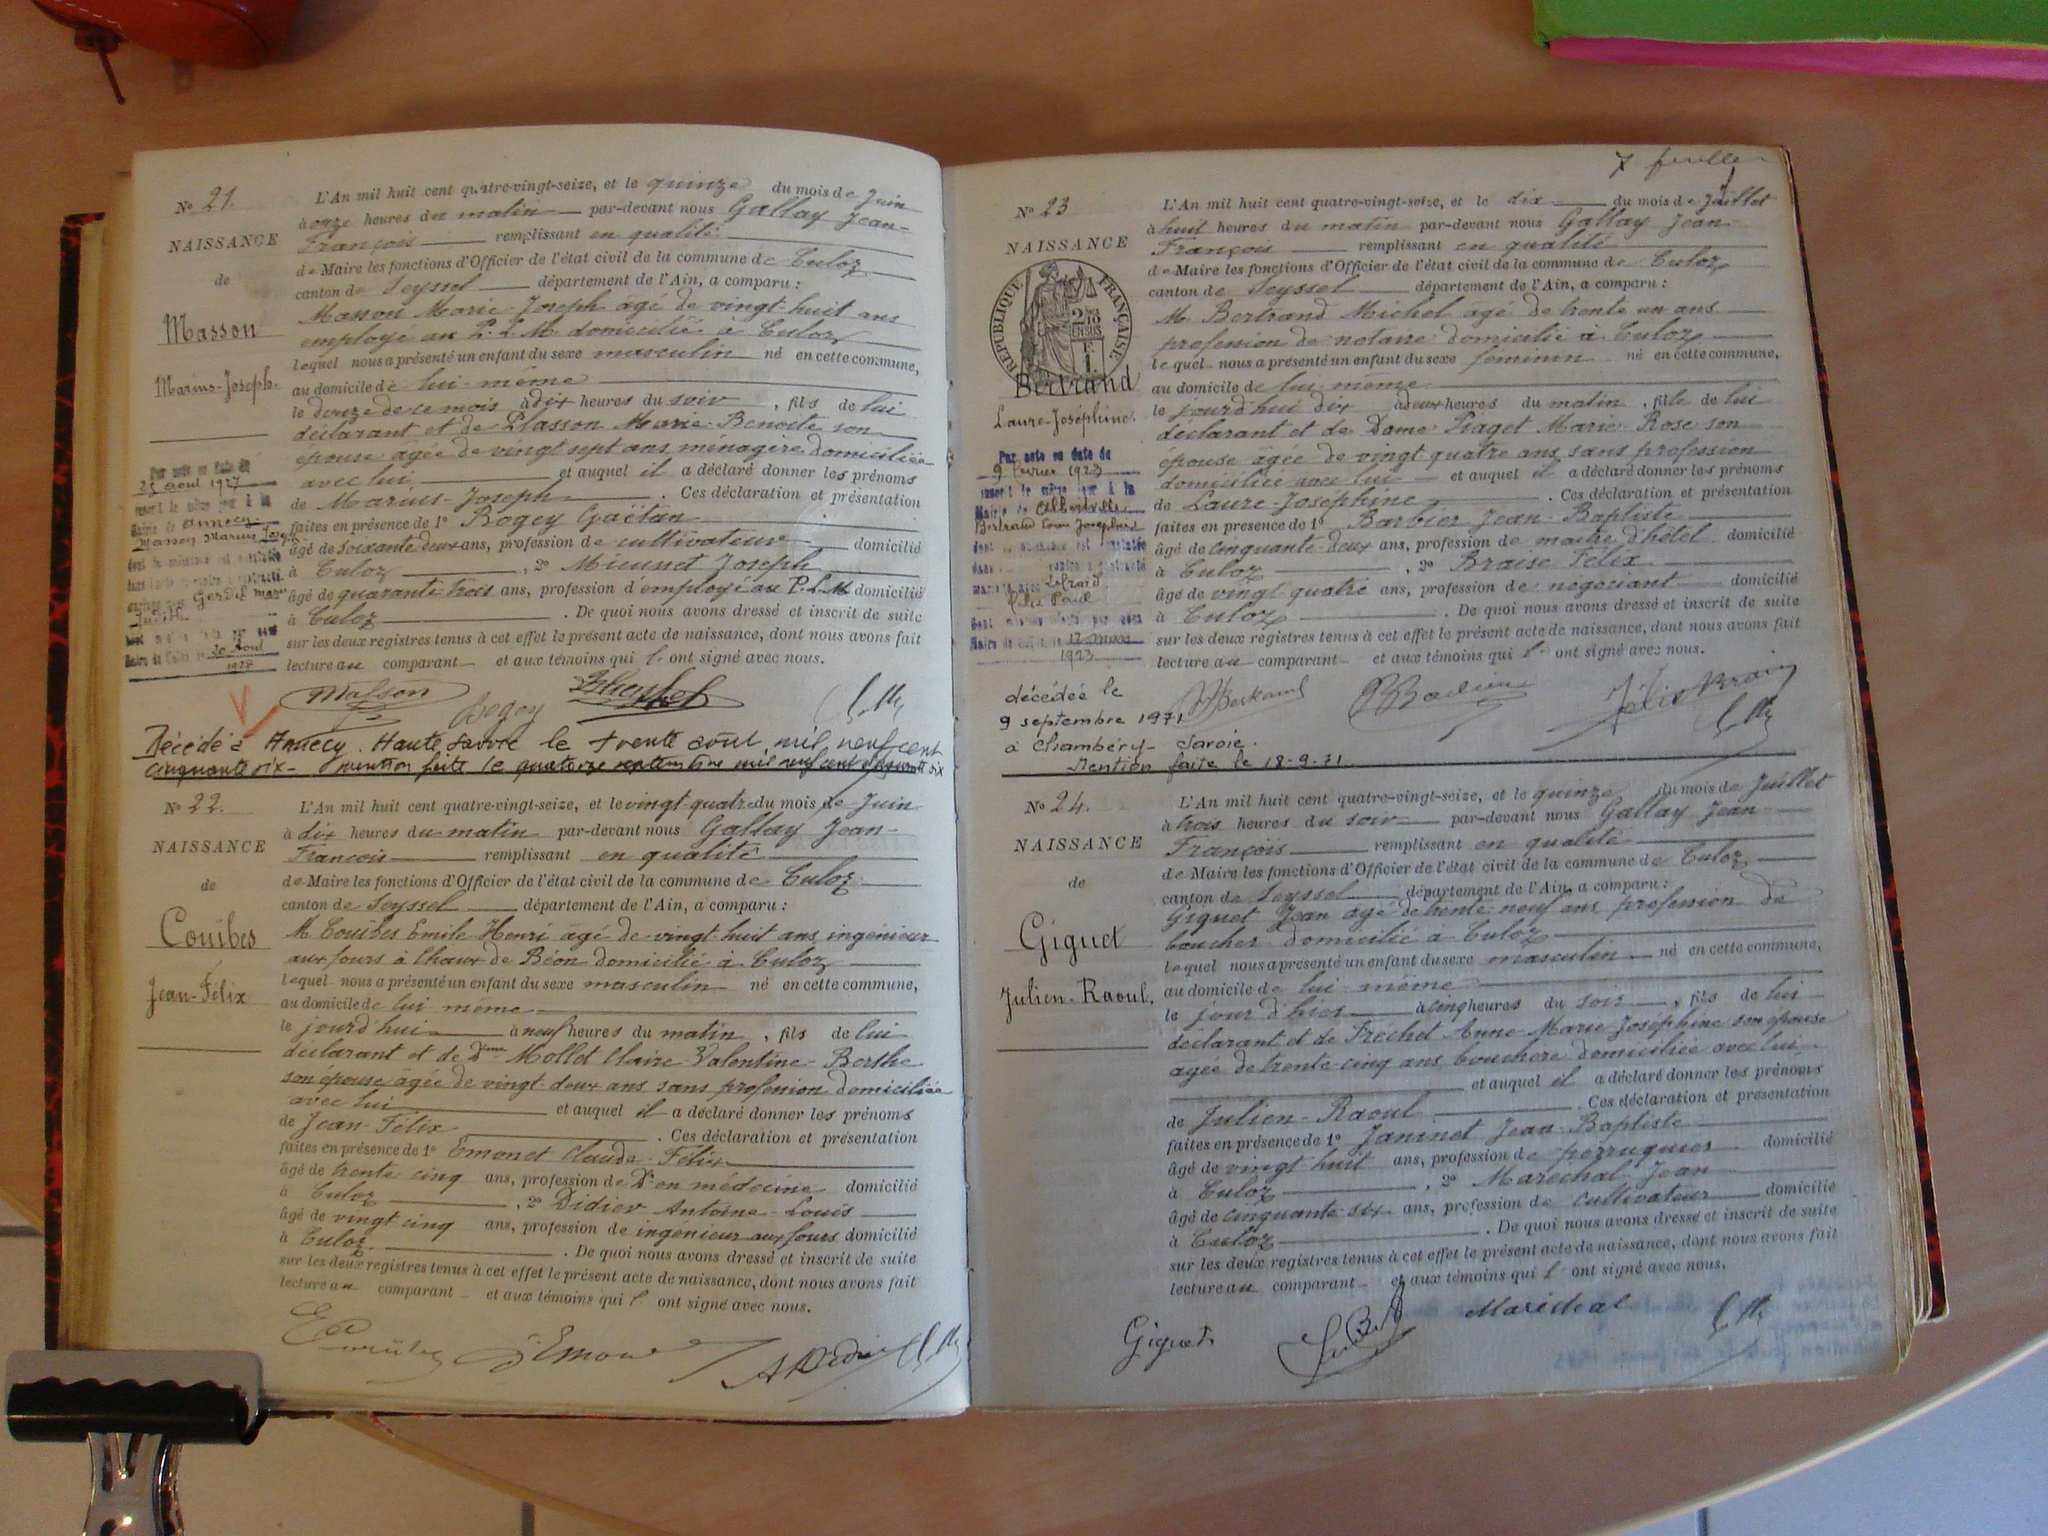 No 21.
NAISSANCE
de
Masson
Marius-Joseph.
L'An mil huit cent quatre-vingt-seize, et le quinze du mois de Juin
à onze heures du matin par-devant nous Gallay Jean-
François remplissant en qualité
de Maire les fonctions d'Officier de l'état civil de la commune de Culoz
canton de Seyssel département de l'Ain, a comparu :
Masson Marie-Joseph âgé de vingt-huit ans
employé au P.L.M. domicilié à Culoz
lequel nous a présenté un enfant du sexe masculin né en cette commune,
au domicile de lui-même
le douze de ce mois à dix heures du soir, fils de lui
déclarant et de Plasson Marie-Benoite son
épouse agée de vingt sept ans ménagère domiciliée
avec lui et auquel il a déclaré donner les prénoms
de Marius-Joseph. Ces déclaration et présentation
faites en présence de 1o Bogey Gaëtan
âgé de soixante deux ans, profession de cultivateur domicilié
à Culoz, 2o Mieusset Joseph
âgé de quarante trois ans, profession d'employé au P.L.M. domicilié
à Culoz. De quoi nous avons dressé et inscrit de suite
sur les deux registres tenus à cet effet le présent acte de naissance, dont nous avons fait
lecture au comparant et aux témoins qui l'ont signé avec nous.
Par acte en date du
25 août 1927
Mairie de Annecy
Masson Marius Joseph
Gerdil Marie
Judith
1927
Masson Bogey
Décédé à Annecy. Haute Savoie le trente août mil neuf cent
cinquante six - mention faite le quatorze septembre mil neuf cent cinquante six
No 22.
NAISSANCE
de
Couibes
Jean-Félix
L'An mil huit cent quatre-vingt-seize, et le vingt-quatre du mois de Juin
à dix heures du matin par-devant nous Gallay Jean-
François remplissant en qualité
de Maire les fonctions d'Officier de l'état civil de la commune de Culoz
canton de Seyssel département de l'Ain, a comparu :
M. Couibes Emile Henri âgé de vingt-huit ans ingénieur
aux fours à Chaux de Béon domicilié à Culoz
lequel nous a présenté un enfant du sexe masculin né en cette commune,
au domicile de lui même
le jourd'hui à neuf heures du matin, fils de lui
déclarant et de Dme Mollet Claire-Valentine-Berthe
son épouse âgée de vingt deux ans sans profession domiciliée
avec lui et auquel il a déclaré donner les prénoms
de Jean-Félix. Ces déclaration et présentation
faites en présence de 1o Emonet Claude-Félix
âgé de trente cinq ans, profession de Dr en médecine domicilié
à Culoz, 2o Didier Antoine-Louis
âgé de vingt cinq ans, profession de ingénieur aux fours domicilié
à Culoz. De quoi nous avons dressé et inscrit de suite
sur les deux registres tenus à cet effet le présent acte de naissance, dont nous avons fait
lecture au comparant et aux témoins qui l'ont signé avec nous.
7 feuille
No 23
NAISSANCE
RÉPUBLIQUE FRANÇAISE
Bertrand
Laure-Joséphine.
L'An mil huit cent quatre-vingt-seize, et le dix du mois de Juillet
à huit heures du matin par-devant nous Gallay Jean-
François remplissant en qualité
de Maire les fonctions d'Officier de l'état civil de la commune de Culoz
canton de Seyssel département de l'Ain, a comparu :
M. Bertrand Michel âgé de trente un ans
profession de notaire domicilié à Culoz
lequel nous a présenté un enfant du sexe féminin né en cette commune,
au domicile de lui-même
le jourd'hui dix à deux heures du matin, fille de lui
déclarant et de Dame Piaget Marie-Rose son
épouse âgée de vingt quatre ans sans profession
domiciliée avec lui et auquel il a déclaré donner les prénoms
de Laure-Joséphine. Ces déclaration et présentation
faites en présence de 1o Barbier Jean-Baptiste
âgé de cinquante-deux ans, profession de maître d'hôtel domicilié
à Culoz, 2o Braise Félix
âgé de vingt quatre ans, profession de négociant domicilié
à Culoz. De quoi nous avons dressé et inscrit de suite
sur les deux registres tenus à cet effet le présent acte de naissance, dont nous avons fait
lecture au comparant et aux témoins qui l'ont signé avec nous.
Par acte en date du
9 février 1923
Mairie de Albertville
Paul
1923
décédée le
9 septembre 1971
à Chambéry - Savoie.
Mention faite le 18-9-71
No 24.
NAISSANCE
de
Giguet
Julien-Raoul.
L'An mil huit cent quatre-vingt-seize, et le quinze du mois de Juillet
à trois heures du soir par-devant nous Gallay Jean
François remplissant en qualité
de Maire les fonctions d'Officier de l'état civil de la commune de Culoz
canton de Seyssel département de l'Ain, a comparu :
Giguet Jean âgé de trente-neuf ans profession de
boucher domicilié à Culoz
lequel nous a présenté un enfant du sexe masculin né en cette commune,
au domicile de lui-même
le jour d'hier à cinq heures du soir, fils de lui
déclarant et de Frechet Anne Marie Joséphine son épouse
agée de trente-cinq ans bouchère domiciliée avec lui
et auquel il a déclaré donner les prénoms
de Julien-Raoul. Ces déclaration et présentation
faites en présence de 1o Janinet Jean-Baptiste
âgé de vingt huit ans, profession de perruquier domicilié
à Culoz, 2o Maréchal Jean
âgé de cinquante-six ans, profession de cultivateur domicilié
à Culoz. De quoi nous avons dressé et inscrit de suite
sur les deux registres tenus à cet effet le présent acte de naissance, dont nous avons fait
lecture au comparant et aux témoins qui l'ont signé avec nous.
Giguet. Maréchal